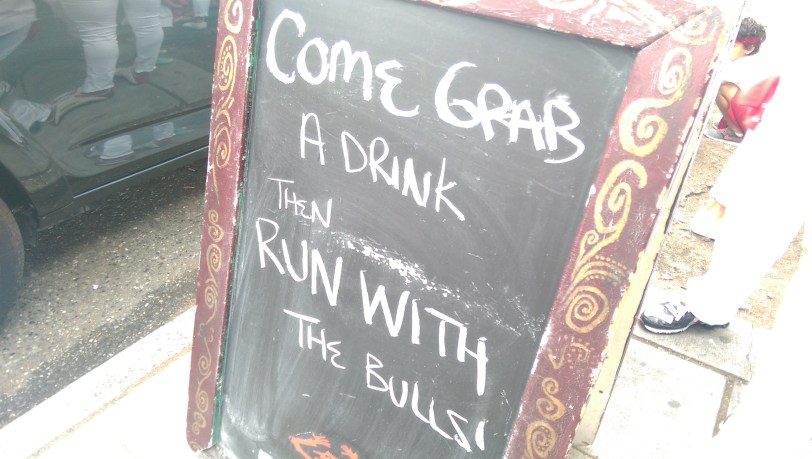 COME GRAB
A DRINK
THEN
RUN WITH
THE BULLS!